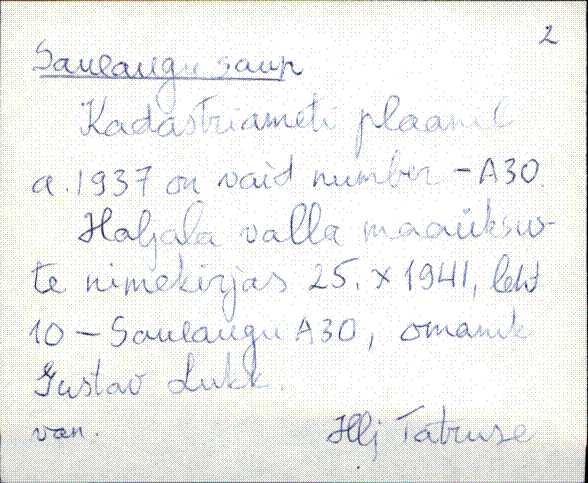 2
Saueaugu saun
Kadastriameti plaanil
a. 1937 on vaid number - A30.
Haljala valla maaüksus-
te nimekirjas 25. X 1941, leht
10 - Saueaugu A30, omanik
Gustav Lukk.
van. Hlj Tatruse